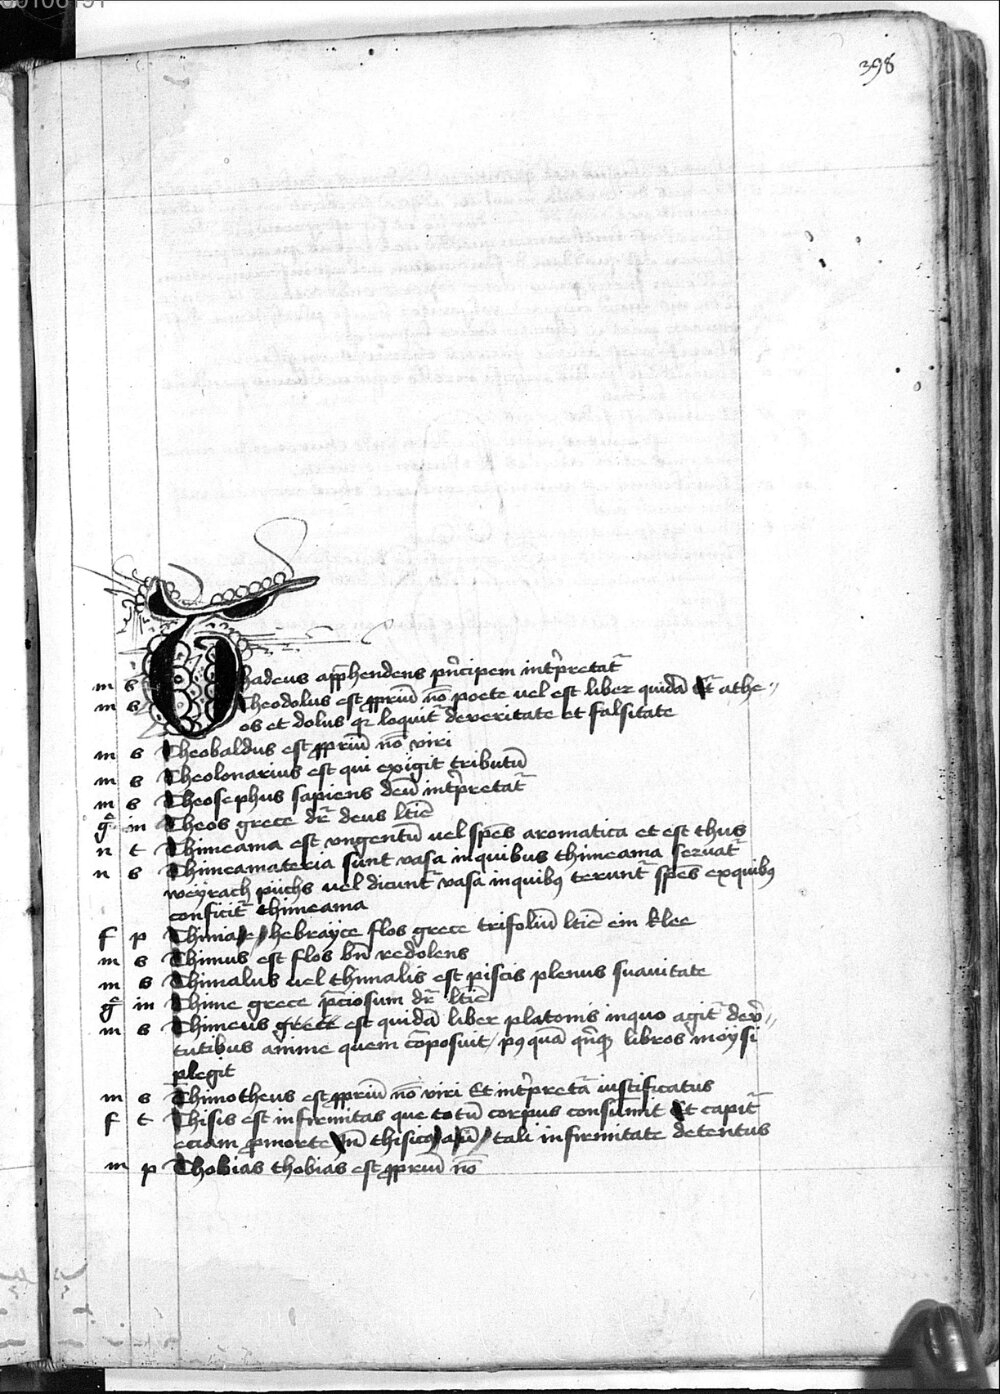 398
m s Thadeus app̄hendens pn̄cipem int̄pretat᷑
m s Theodolus est ꝓpriū nō poete uel est liber quidā et athe〃
os et dolus qꝛ loquit᷑ deveritate et falsitate
m s Theobaldus est ꝓpriū nō viri
m s Theolonarius est qui exigit tributū
m s Theosephus sapiens deū int̄pretat᷑
g̊ in Theos grece dr̄ deus ltīe
n t Thimeama est vngentū uel spēs aromatica et est thus
n s Thimeamateria sunt vasa inquibus thimeama seruat᷑
weyrach püchs uel dicunt᷑ vasa inquibꝫ terunt᷑ spēs exquibꝫ
conficit᷑ thimeama
f p Thimia hebrayce flos grece trifoliū ltīe ein klee
m s Thimus est flos bn̄ redolens
m s Thimalus uel thimalis est piscis plenus suauitate
g̊ in Thime grece p̄ciosum dr̄ ltīe
m s Thimeus grece est quidā liber platonis inquo agit᷑ dev̄〃
tutibus anime quem cōposuit pꝰquā qn̄qꝫ libros moysi
plegit
m s Thimotheus est ꝓpriū nō viri Et int̄pretat᷑ iustificatus
f t Thisis est infirmitas que totū corpus consumit Et capit᷑
eciam ꝓmorte thisicꝰ tali infirmitate detentus
m p Thobias thobias est ꝓpriū nō